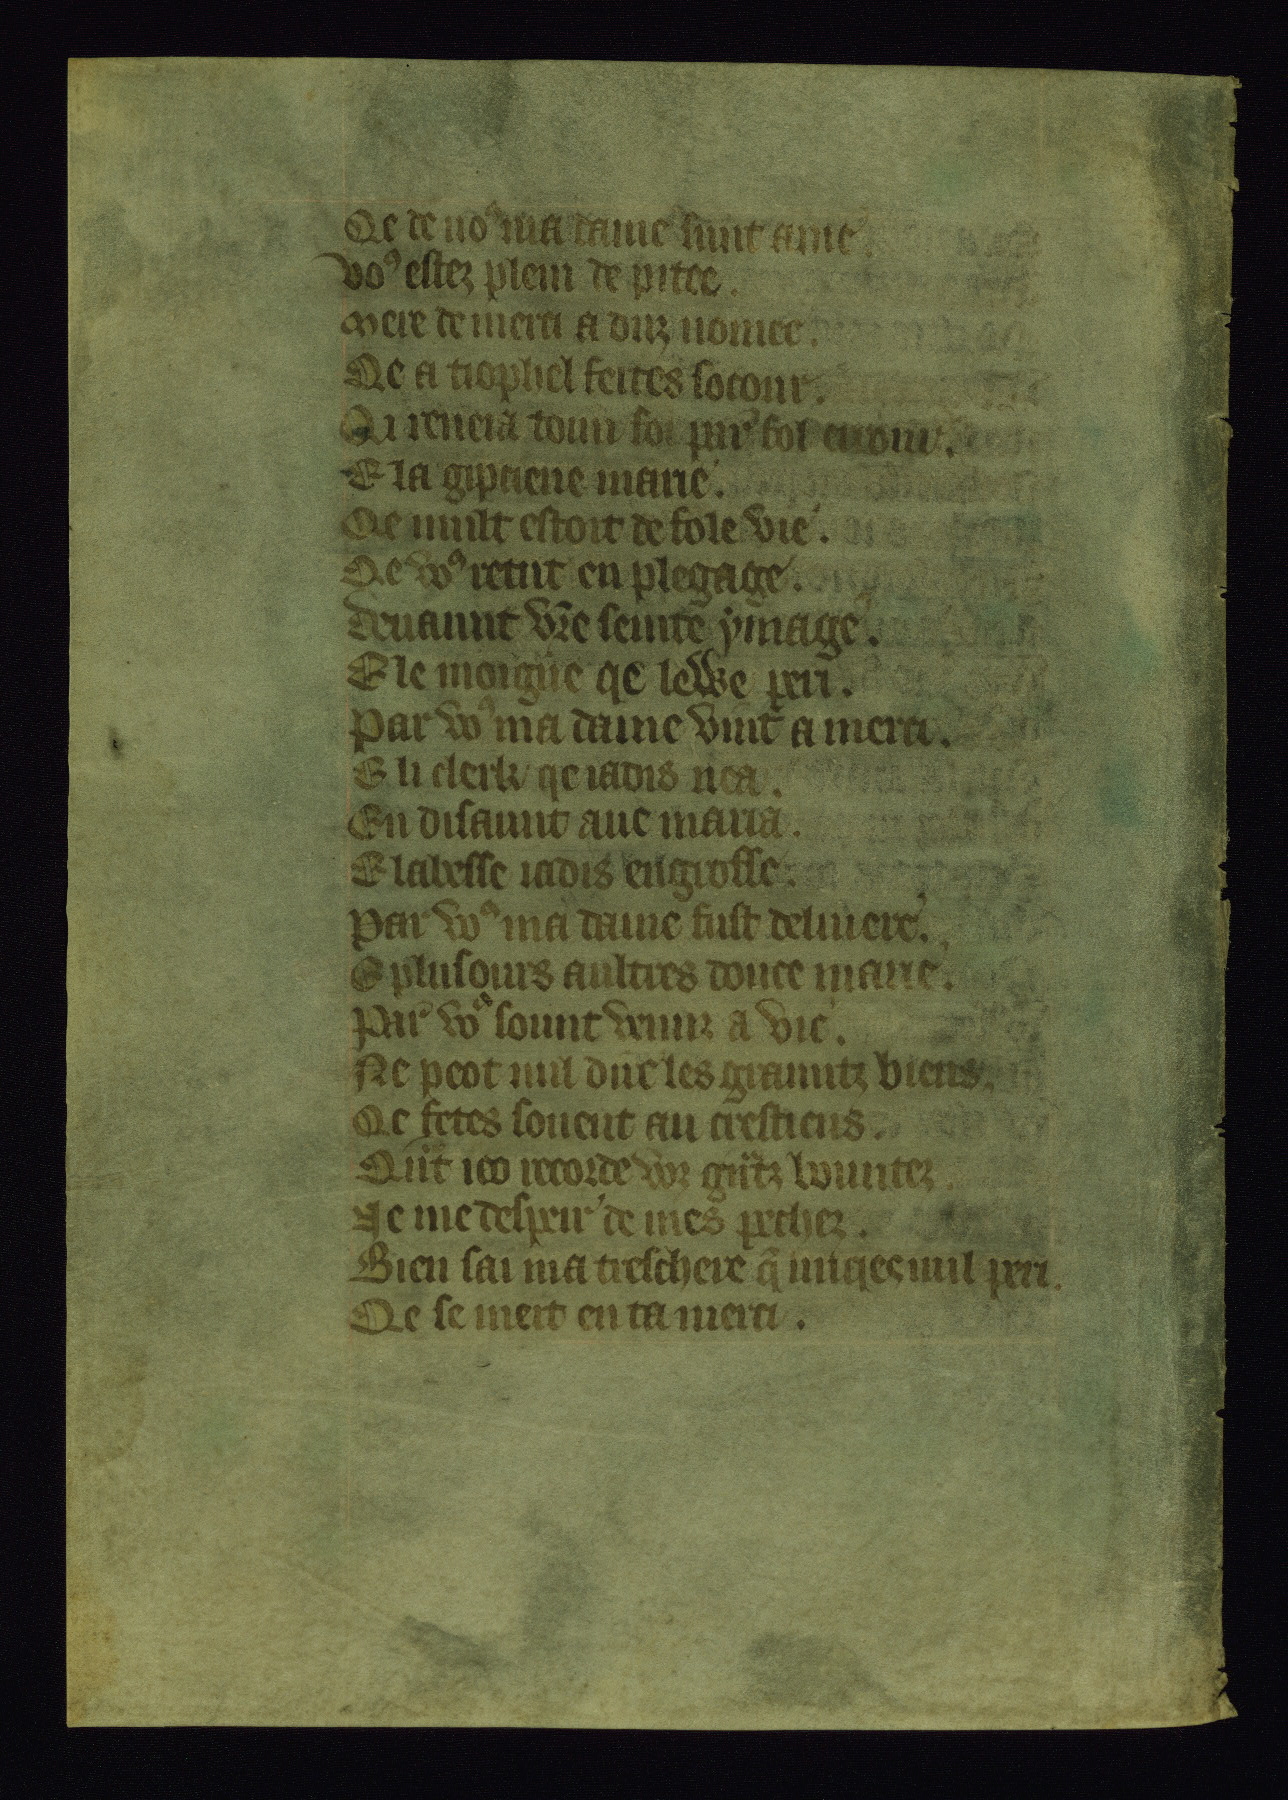 Qe de noꝰ ma dame sunt ame.
voꝰ estez plein de pitee.
Mere de merci a droiz nomee.
Qe a tiophel feites socour.
Qi reneia toun foi par fol errour.
E la gipciene marie.
Qe mult estoit de fole vie.
Qe voꝰ retut en plegage.
deuaunt vr̄e seinte ymage.
E le moigne qe lewe peri.
Par voꝰ ma dame vint a merci.
E li clerk qe iadis nea.
En disaunt aue maria.
E labesse iadis engrosse.
Par voꝰ ma dame fust deliuere.
E plusours aultres douce marie.
Par voꝰ sount venuz a vie.
Ne peot nul dire les grauntz biens.
Qe fetes souent au crestiens.
Qūt ico recorde voz gūtz bountez.
Je me despeir de mes pechez.
Bien sai ma treschere q̄ unqes nul peri.
Qe se mert en ta merci.